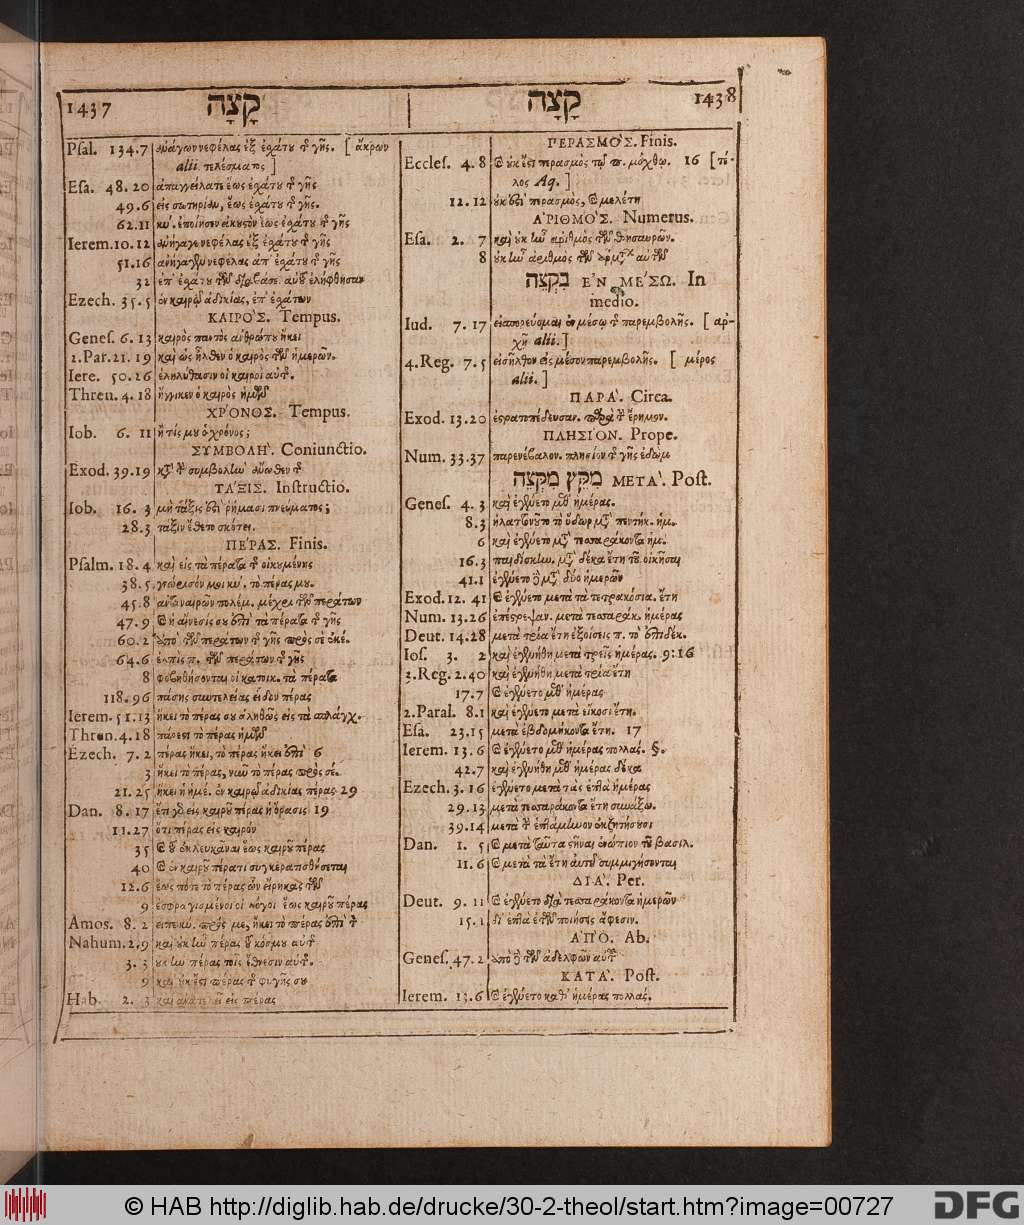 1437 קָצָה
Psal. 134.7 ἀνάγων νεφέλας ἐξ ἐχάτου τ̃ γῆς. [ ἄκρων
alii. τελέσματος ]
Esa. 48. 20 ἀπαγγείλατε ἕως ἐχάτου τ̃ γῆς
49.6 εἰς σωτηρίαν, ἕως ἐχάτου τ̃ γῆς.
62.11 κύ. ἐποίησεν ἀκουστὸν ἕως ἐχάτου τ̃ γῆς
Ierem. 10. 12 ἀνήγαγε νεφέλας ἐξ ἐχάτου τ̃ γῆς
51.16 ἀνήγαγεν νεφέλας ἀπ' ἐχάτου τ̃ γῆς
32 ἐπ' ἐχάτου
Ezech. 35. 5 ἐν καιρῷ ἀδικίας, ἐπ' ἐχάτων
ΚΑΙΡΟ'Σ. Tempus.
Genes. 6. 13 καιρὸς παντὸς ἀνθρώπου ἥκει
2. Par. 21. 19 καὶ ὡς ἦλθεν ὁ καιρὸς τῶν ἡμερῶν.
Iere. 50. 26 ἐληλύθασιν οἱ καιροὶ αὐτ̃.
Thren. 4. 18 ἤγγικεν ὁ καιρὸς ἡμῶν
ΧΡΟ'ΝΟΣ. Tempus.
Iob. 6. 11 ἢ τίς μου ὁ χρόνος;
ΣΥΜΒΟΛΗ'. Coniunctio.
Exod. 39.19 συμβολὴν ἄνωθεν τ̃
ΤΑ'ΞΙΣ. Instructio.
Iob. 16. 3 μὴ τάξις ἐστὶ ῥήμασι πνεύματος;
28.3 τάξιν ἔθετο σκότει.
ΠΕ'ΡΑΣ. Finis.
Psalm. 18. 4 καὶ εἰς τὰ πέρατα τ̃ οἰκουμένης
38. 5 γνώρισόν μοι κύ. τὸ πέρας μου.
45.8 ἀνταναιρῶν πολέμ. μέχρι τῶν περάτων
47. 9 ἡ αἴνεσίς σου ἐπὶ τὰ πέρατα τ̃ γῆς
60. 2 ἀπὸ τῶν περάτων τ̃ γῆς πρὸς σὲ ἐκέ.
64.6 ἐλπὶς π. τῶν περάτων τ̃ γῆς
8 φοβηθήσονται οἱ κατοικ. τὰ πέρατα
118. 96 πάσης συντελείας εἶδον πέρας
Ierem. 51. 13 ἥκει τὸ πέρας σου ἀληθῶς εἰς τὰ σπλάγχ.
Thren. 4. 18 πάρεστι τὸ πέρας ἡμῶν
Ezech. 7. 2 πέρας ἥκει, τὸ πέρας ἥκει ἐπὶ 6
3 ἥκει τὸ πέρας, νῦν τὸ πέρας πρὸς σέ.
21. 25 ἥκει ἡ ἡμέ. ἐν καιρῷ ἀδικίας πέρας 29
Dan. 8. 17 ἔτι γὰρ εἰς καιροῦ πέρας ἡ ὅρασις 19
11.27 ὅτι πέρας εἰς καιρὸν
35 ἐκλευκᾶναι ἕως καιροῦ πέρας
40 ἐν καιροῦ πέρατι συγκερατισθήσεται
12.6 ἕως πότε τὸ πέρας ὧν εἴρηκας τῶν
9 ἐσφραγισμένοι οἱ λόγοι ἕως καιροῦ πέρας
Amos. 8. 2 εἶπε κύ. πρός με, ἥκει τὸ πέρας ἐπὶ τ̃
Nahum. 2. 9 καὶ οὐκ ἦν πέρας τοῦ κόσμου αὐτ̃
3. 3 οὐκ ἦν πέρας τοῖς ἔθνεσιν αὐτ̃.
9 καὶ οὐκ ἔστι πέρας τ̃ φυγῆς σου
Hab. 2. 3 καὶ ἀνατελεῖ εἰς πέρας
קָצָה 1438
ΠΕΡΑΣΜΟ'Σ. Finis.
Eccles. 4. 8 οὐκ ἔστι περασμὸς τῷ π. μόχθῳ. 16 [ τέ-
λος Aq. ]
12. 12 οὐκ ἐστὶ περασμός, μελέτη
Α'ΡΙΘΜΟ'Σ. Numerus.
Esa. 2. 7 καὶ οὐκ ἦν ἀριθμὸς τῶν θησαυρῶν.
8 οὐκ ἦν ἀριθμὸς τῶν αὐτῶν
בִּקְצֵה Ε'Ν ΜΕ'ΣΩ. In
medio.
Iud. 7. 17 εἰσπορεύομαι ἐν μέσῳ τ̃ παρεμβολῆς. [ ἀρ-
χῇ alii. ]
4. Reg. 7. 5 εἰσῆλθον εἰς μέσον παρεμβολῆς. [ μέρος
alii. ]
ΠΑΡΑ'. Circa.
Exod. 13. 20 ἐστρατοπέδευσαν. παρὰ τ̃ ἔρημον.
ΠΛΗΣΙ'ΟΝ. Prope.
Num. 33.37 παρενέβαλον. πλησίον τ̃ γῆς ἐδώμ
מִקֵּץ מִקְצֵה ΜΕΤΑ'. Post.
Genes. 4. 3 καὶ ἐγένετο μεθ' ἡμέρας.
8.3 ἠλαττονοῦτο τὸ ὕδωρ μετὰ πεντήκ. ἡμ.
6 καὶ ἐγένετο μετὰ τεσσαράκοντα ἡμ.
16.3 παιδίσκην. μετὰ δέκα ἔτη τοῦ οἰκῆσαι
41.1 ἐγένετο δὲ μετὰ δύο ἡμερῶν
Exod. 12. 41 ἐγένετο μετὰ τὰ τετρακόσια. ἔτη
Num. 13.26 ἐπέστρεψαν. μετὰ τεσσαράκ. ἡμέρας
Deut. 14.28 μετὰ τρία ἔτη ἐξοίσεις π. τὸ ἐπιδέκ.
Ios. 3. 2 καὶ ἐγενήθη μετὰ τρεῖς ἡμέρας. 9: 16
3. Reg. 2. 40 καὶ ἐγενήθη μετὰ τρία ἔτη
17.7 ἐγένετο μεθ' ἡμέρας
2. Paral. 8.1 καὶ ἐγένετο μετὰ εἴκοσι ἔτη.
Esa. 23.15 μετὰ ἑβδομήκοντα ἔτη. 17
Ierem. 13. 6 ἐγένετο μεθ' ἡμέρας πολλάς. §.
42.7 καὶ ἐγενήθη μεθ' ἡμέρας δέκα
Ezech. 3. 16 ἐγένετο μετὰ τὰς ἑπτὰ ἡμέρας
29. 13 μετὰ τεσσαράκοντα ἔτη συνάξω.
39.14 μετὰ τ̃ ἑπτάμηνον ἐκζητήσουσι
Dan. 1. 5 μετὰ ταῦτα στῆναι ἐνώπιον τοῦ βασιλ.
11. 6 μετὰ τὰ ἔτη αὐτοῦ συμμιγήσονται
ΔΙΑ'. Per.
Deut. 9. 11 ἐγένετο διὰ τεσσαράκοντα ἡμερῶν
15. 1 δι' ἑπτὰ ἐτῶν ποιήσεις ἄφεσιν.
Α'ΠΟ'. Ab.
Genes. 47. 2 ἀπὸ δὲ τῶν ἀδελφῶν αὐτ̃
ΚΑΤΑ'. Post.
Ierem. 13.6 ἐγένετο καθ' ἡμέρας πολλάς.
© HAB http://diglib.hab.de/drucke/30-2-theol/start.htm?image=00727
DFG